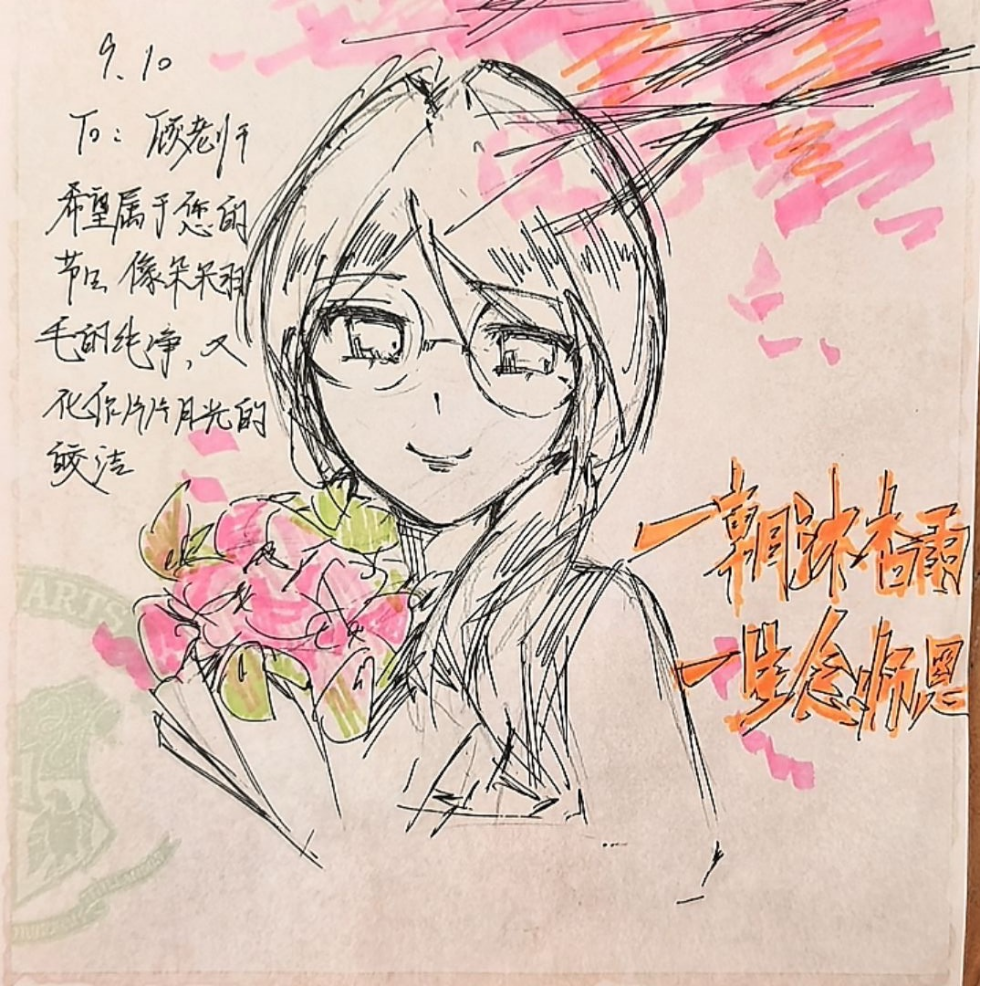 9.10
To: 顾老师
希望属于您的
节日 像朵朵羽
毛的纯净,又
化作片片月光的
皎洁
一朝沐杏雨
一生念师恩
ARTS